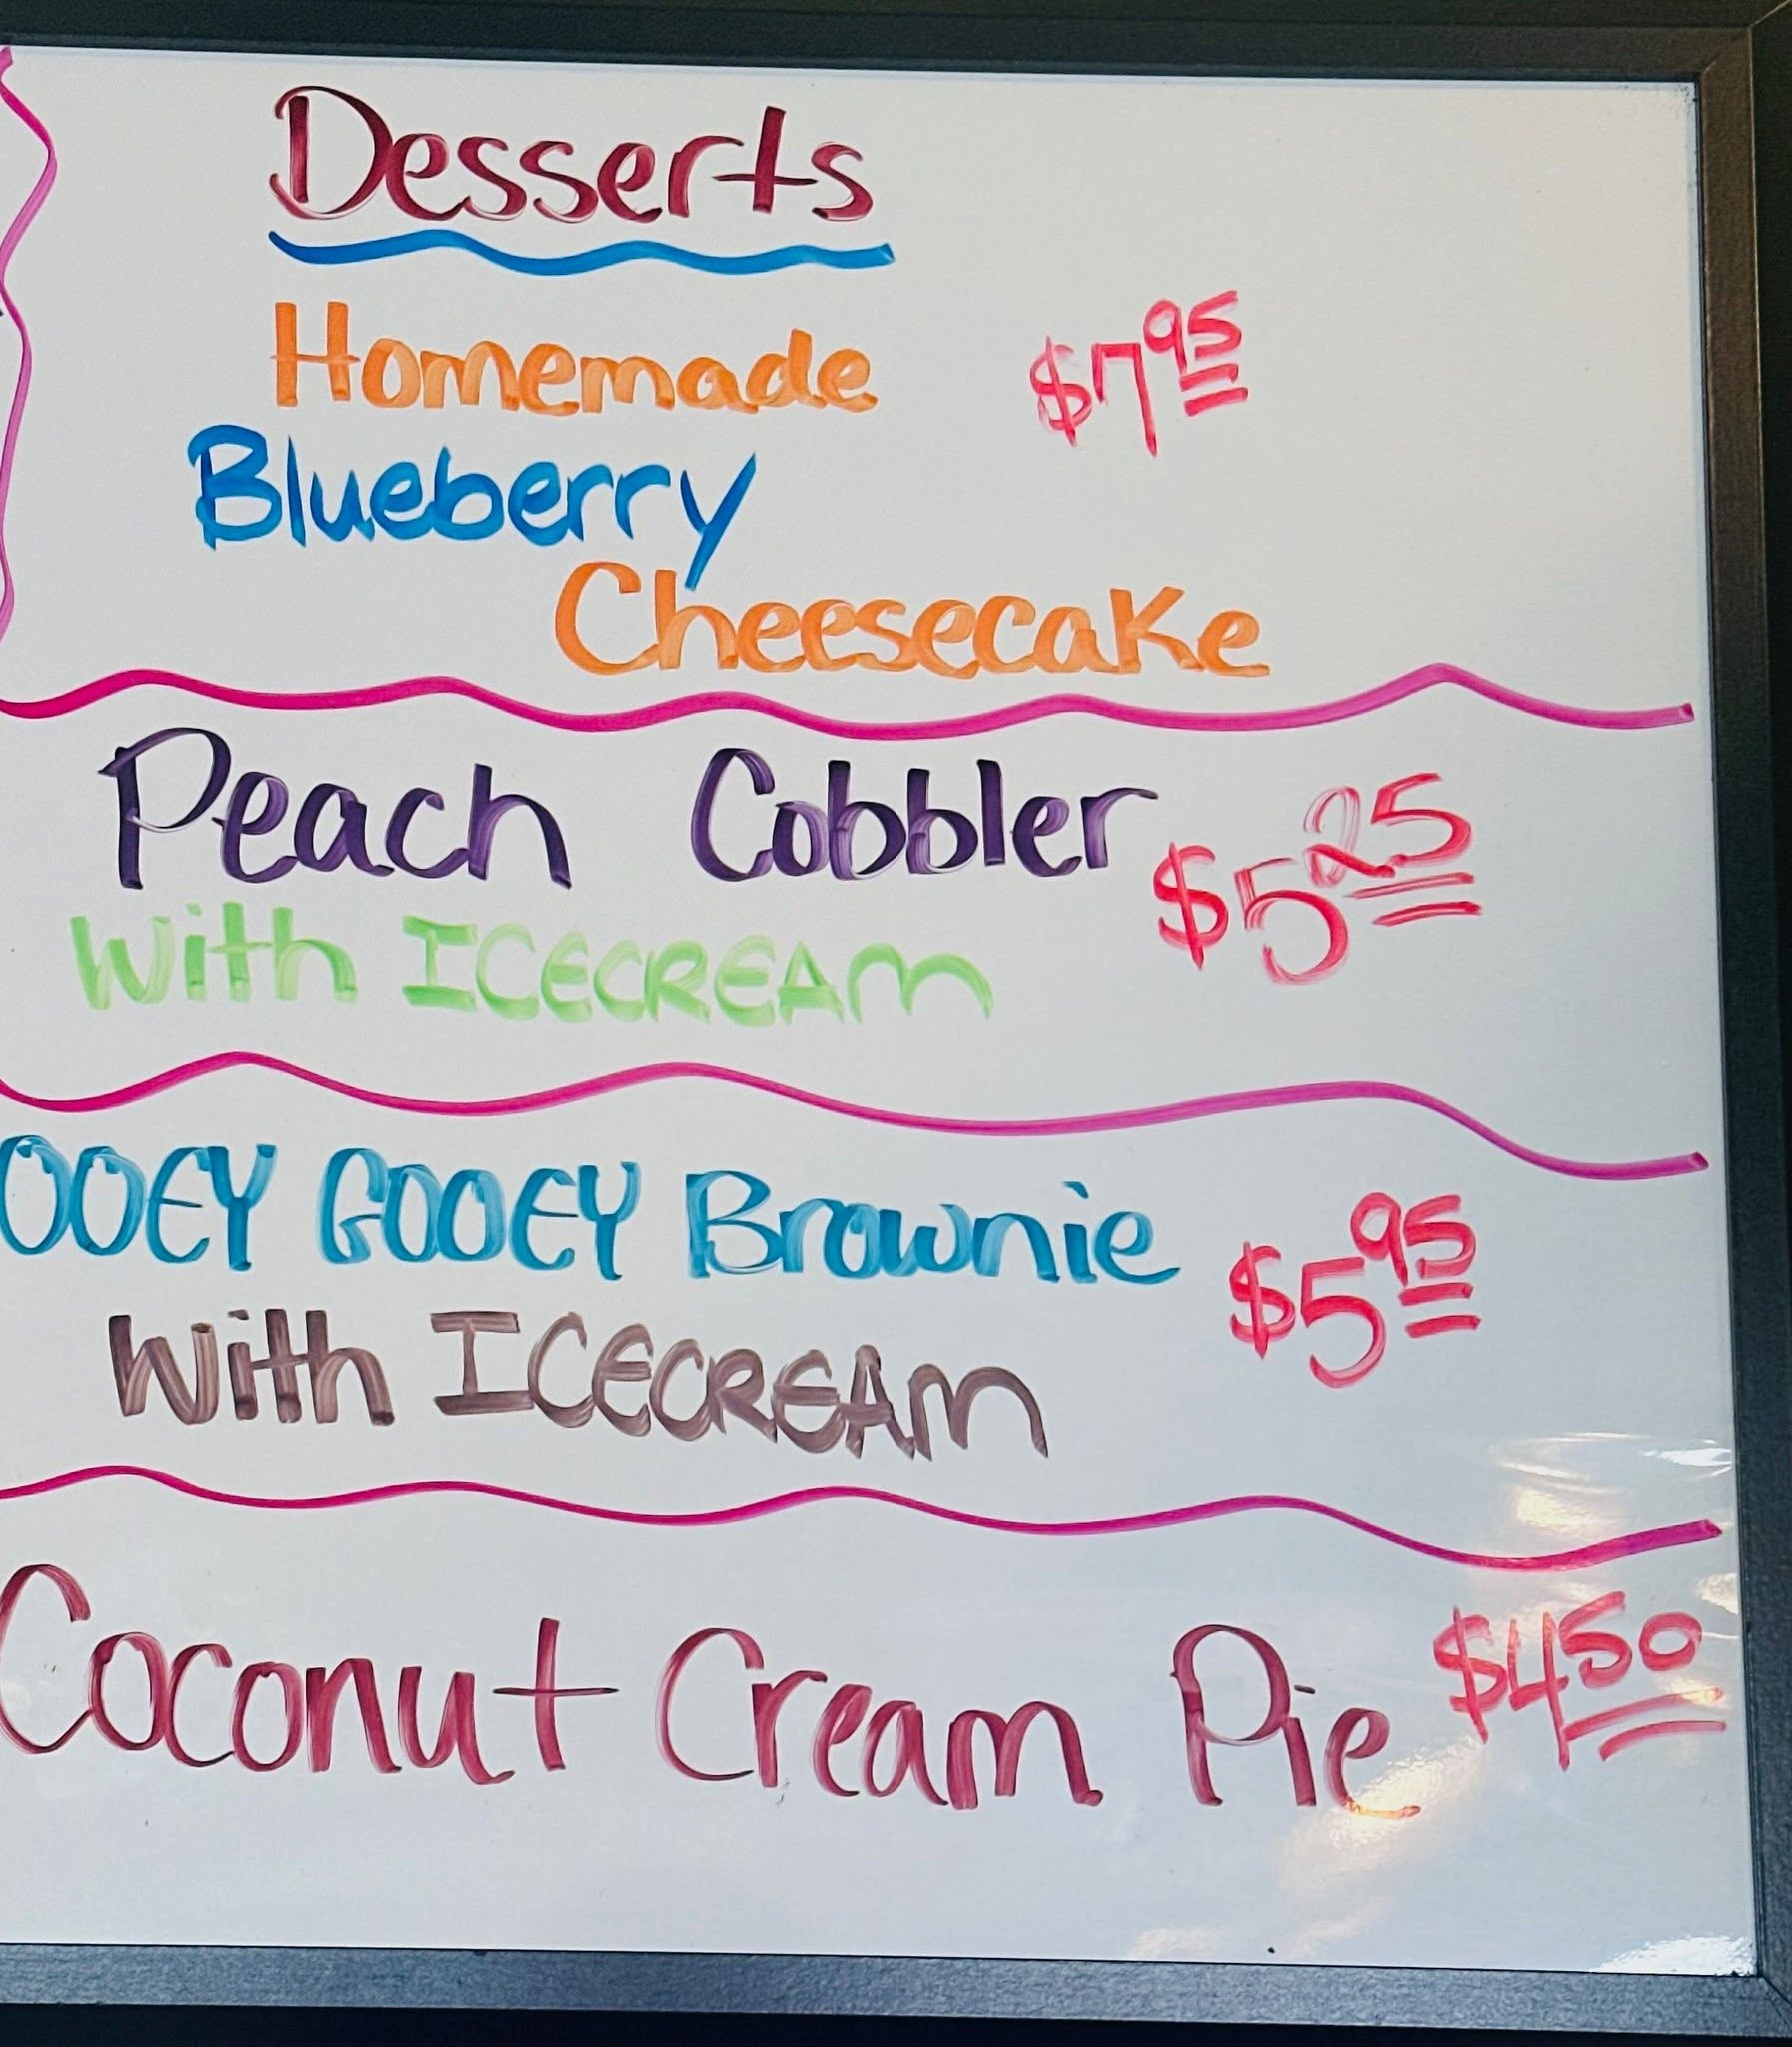 Desserts
Homemade $7.95
Blueberry
Cheesecake
Peach Cobbler $5.25
With ICECREAM
OOEY GOOEY Brownie $5.95
With ICECREAM
Coconut Cream Pie $4.50